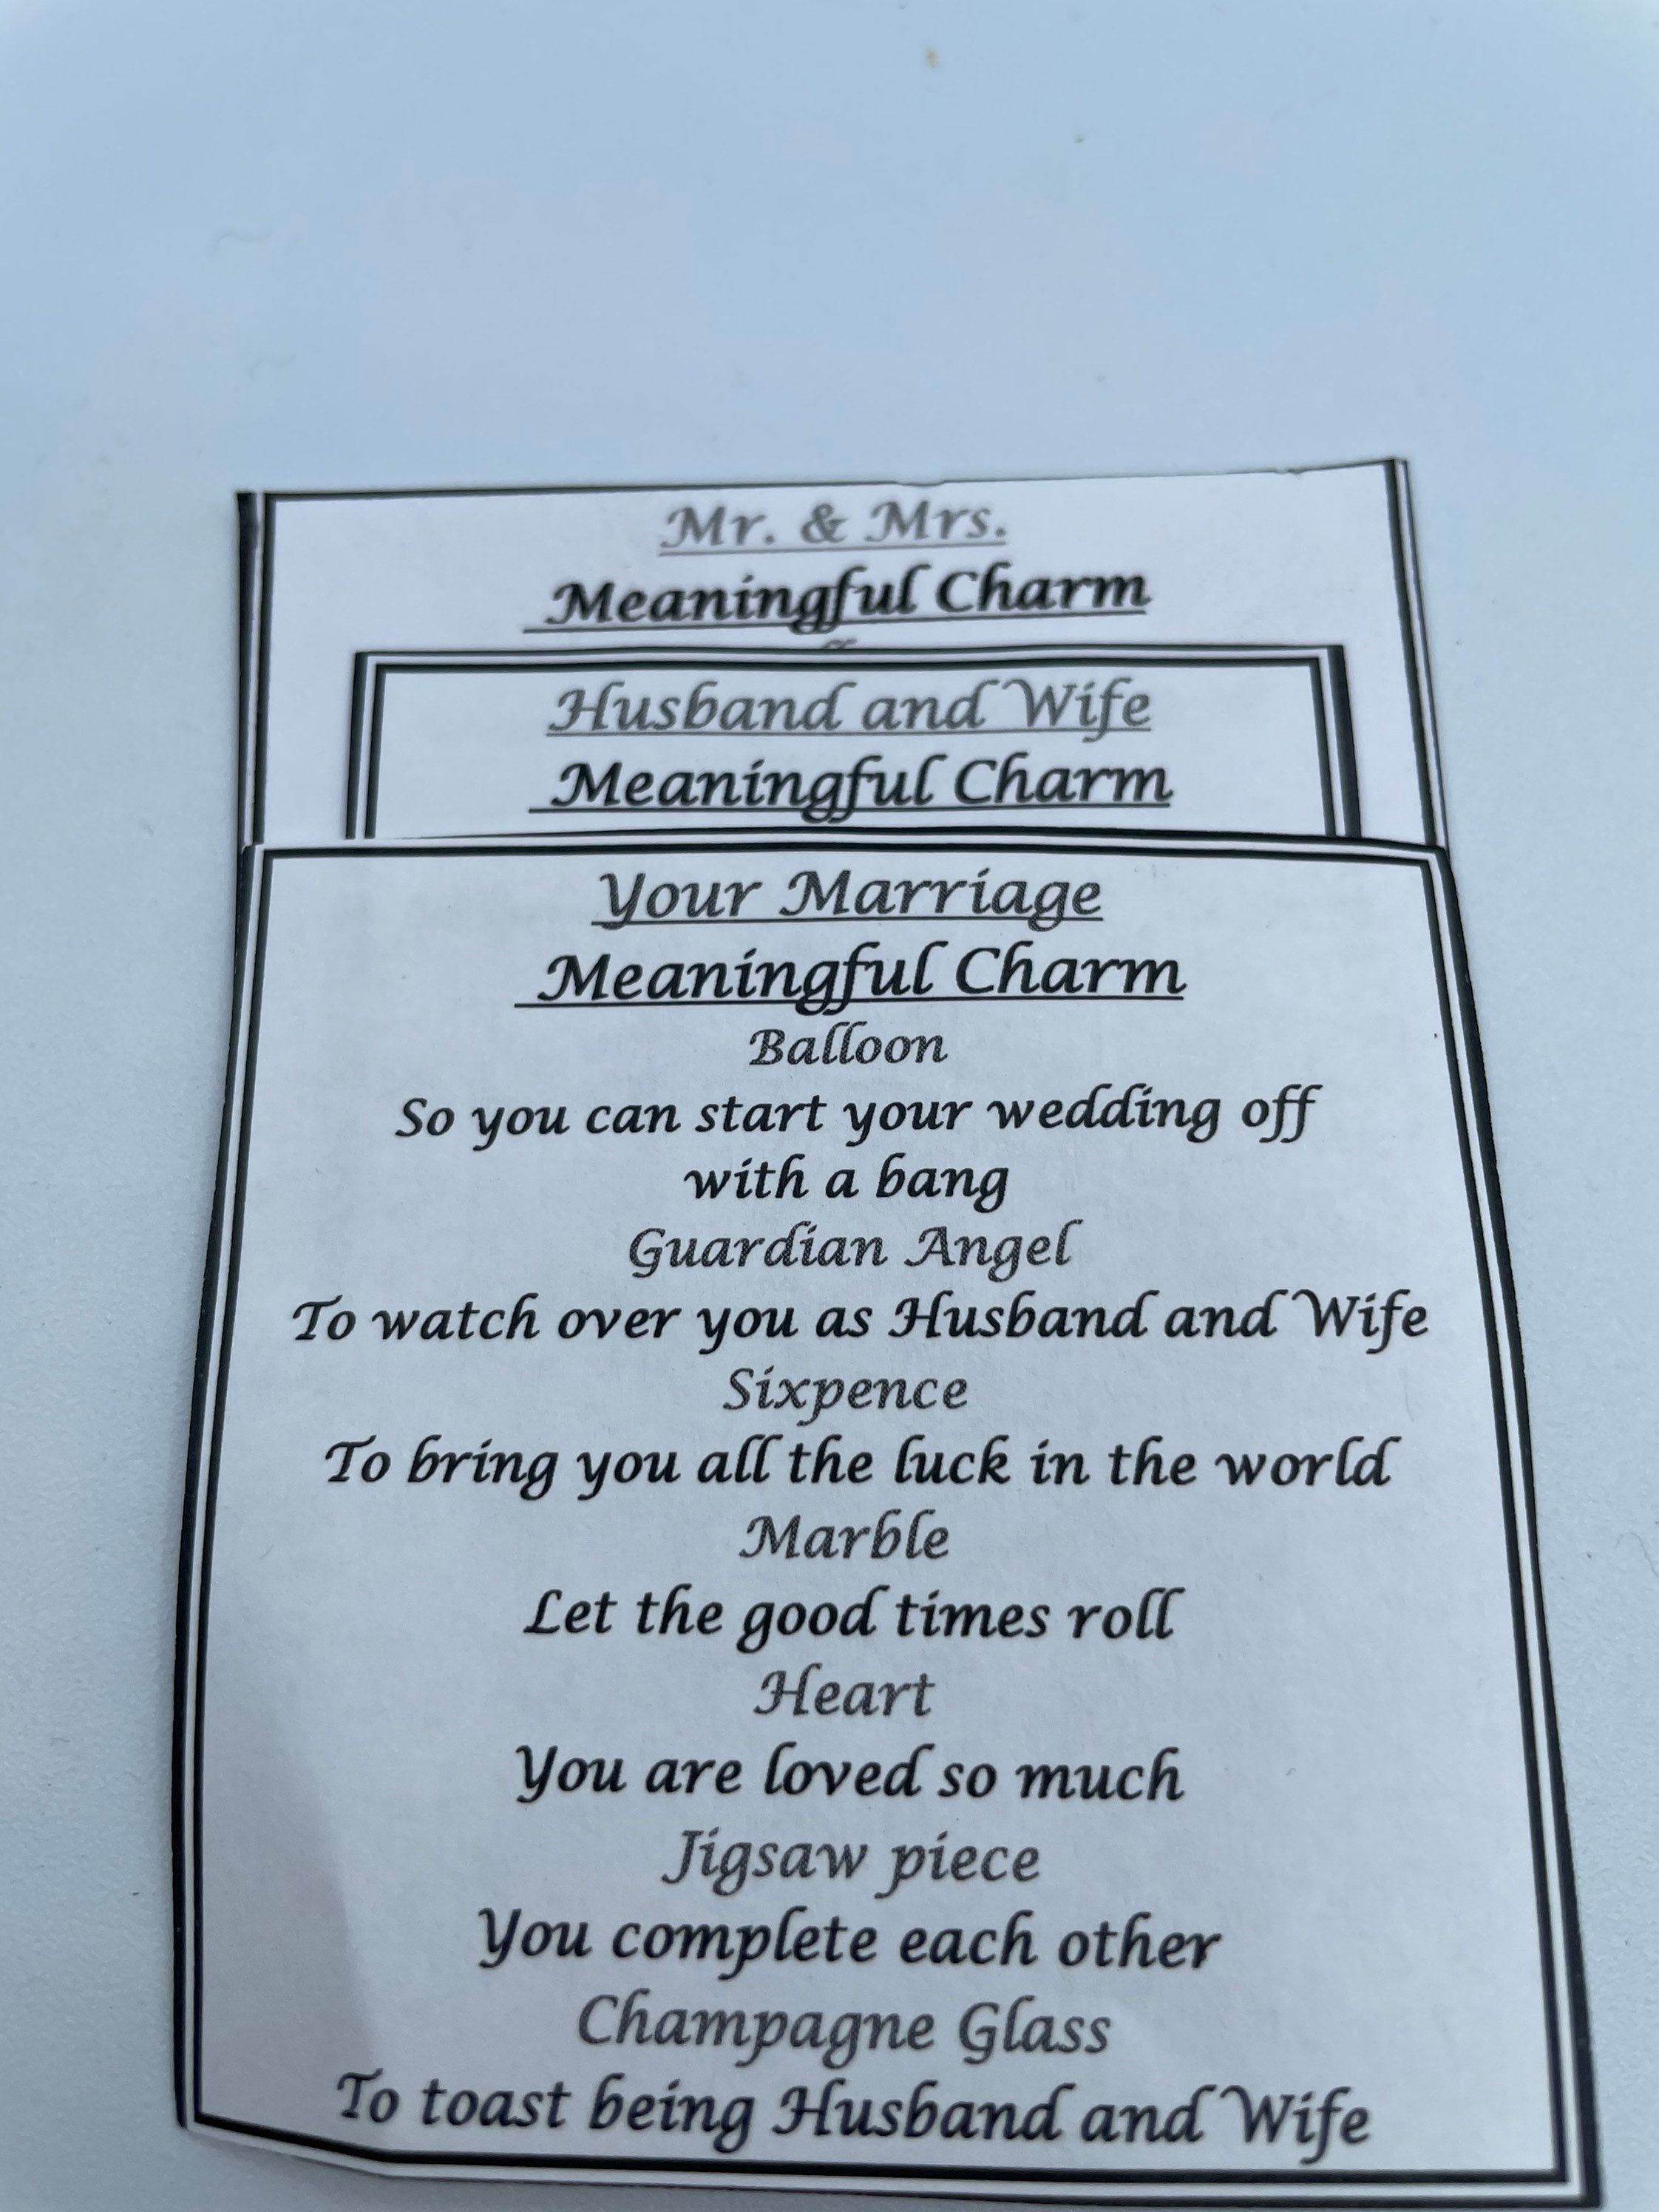 Mr. & Mrs.
Meaningful Charm
Husband and Wife
Meaningful Charm
Your Marriage
Meaningful Charm
Balloon
So you can start your wedding off
with a bang
Guardian Angel
To watch over you as Husband and Wife
Sixpence
To bring you all the luck in the world
Marble
Let the good times roll
Heart
You are loved so much
Jigsaw piece
You complete each other
Champagne Glass
To toast being Husband and Wife